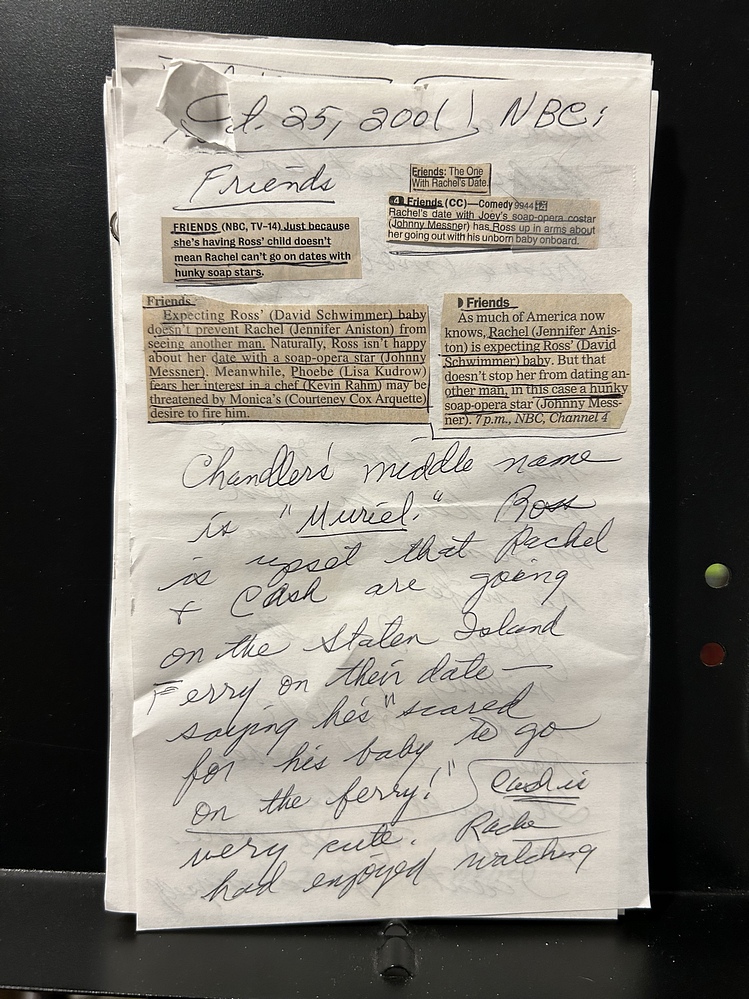 Oct. 25, 2001) NBC:
Friends
Friends: The One
With Rachel's Date.
4 Friends (CC)—Comedy 9944
Rachel's date with Joey's soap-opera costar
(Johnny Messner) has Ross up in arms about
her going out with his unborn baby onboard.
FRIENDS (NBC, TV-14) Just because
she's having Ross' child doesn't
mean Rachel can't go on dates with
hunky soap stars.
Friends
Expecting Ross' (David Schwimmer) baby
doesn't prevent Rachel (Jennifer Aniston) from
seeing another man. Naturally, Ross isn't happy
about her date with a soap-opera star (Johnny
Messner). Meanwhile, Phoebe (Lisa Kudrow)
fears her interest in a chef (Kevin Rahm) may be
threatened by Monica's (Courteney Cox Arquette)
desire to fire him.
Friends
As much of America now
knows, Rachel (Jennifer Anis-
ton) is expecting Ross' (David
Schwimmer) baby. But that
doesn't stop her from dating an-
other man, in this case a hunky
soap-opera star (Johnny Mess-
ner). 7 p.m., NBC, Channel 4
Chandler's middle name
is "Muriel." Ross
is upset that Rachel
+ Cash are going
on the Staten Island
Ferry on their date —
saying he's "scared
for his baby to go
on the ferry!" Cash is
very cute. Rache
had enjoyed watching